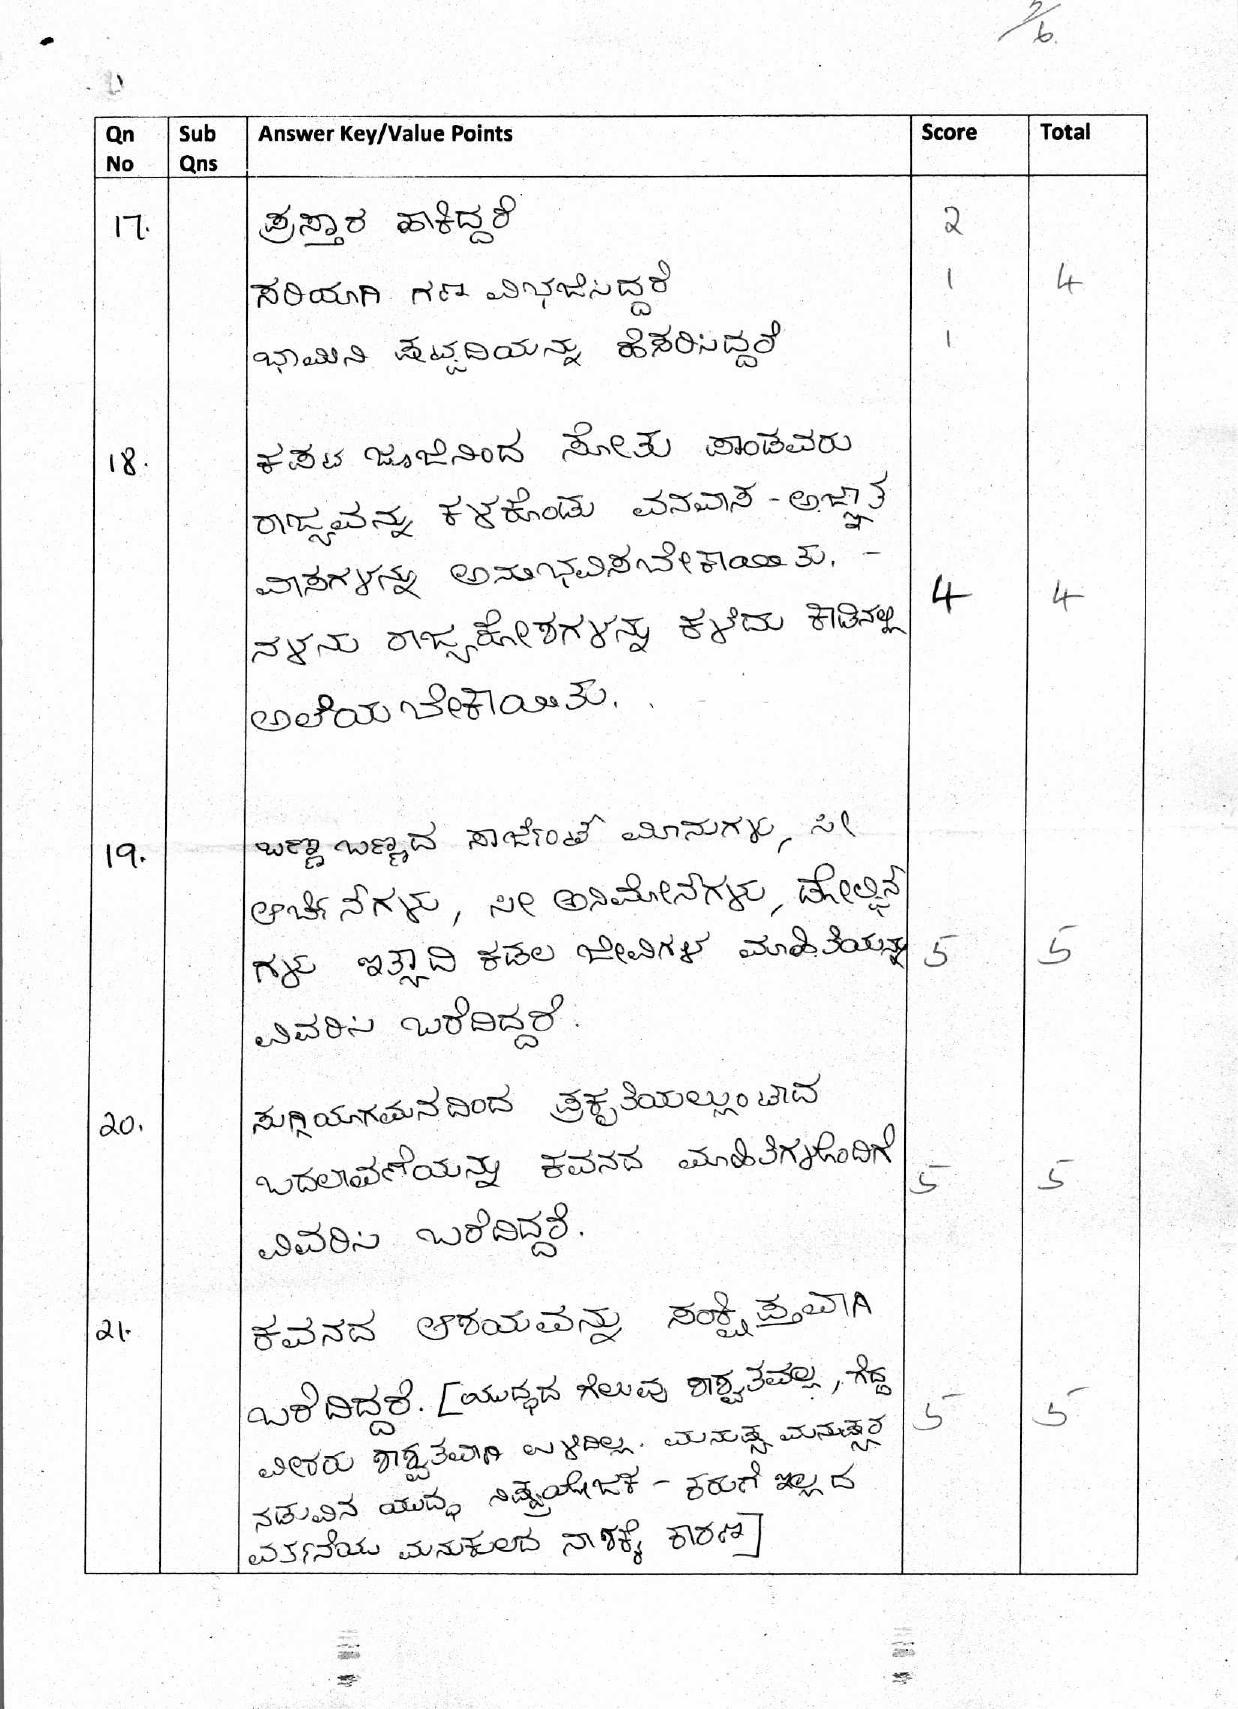 7/6.
Qn No Sub Qns Answer Key/Value Points Score Total
17. ಪ್ರಸ್ತಾರ ಹಾಕಿದ್ದರೆ 2
ಸರಿಯಾಗಿ ಗಣ ವಿಭಜಿಸಿದ್ದರೆ 1 4
ಭಾಮಿನಿ ಷಟ್ಪದಿಯನ್ನು ಹೆಸರಿಸಿದ್ದರೆ 1
18. ಕಪಟ ಜೂಜಿನಿಂದ ಸೋತು ಪಾಂಡವರು
ರಾಜ್ಯವನ್ನು ಕಳಕೊಂಡು ವನವಾಸ - ಅಜ್ಞಾತ
ವಾಸಗಳನ್ನು ಅನುಭವಿಸಬೇಕಾಯಿತು. -
ನಳನು ರಾಜ್ಯಕೋಶಗಳನ್ನು ಕಳೆದು ಕಾಡಿನಲ್ಲಿ 4 4
ಅಲೆಯಬೇಕಾಯಿತು.
19. ಬಣ್ಣ ಬಣ್ಣದ ಸಾರ್ಜೆಂಟ್ ಮೀನುಗಳು, ಸೀ
ಅರ್ಚಿನ್‌ಗಳು, ಸೀ ಅನಿಮೋನ್‌ಗಳು, ಡೋಲ್ಫಿನ್
ಗಳು ಇತ್ಯಾದಿ ಕಡಲ ಜೀವಿಗಳ ಮಾಹಿತಿಯನ್ನು 5 5
ವಿವರಿಸಿ ಬರೆದಿದ್ದರೆ.
20. ಸುಗ್ಗಿಯಾಗಮನದಿಂದ ಪ್ರಕೃತಿಯಲ್ಲುಂಟಾದ
ಬದಲಾವಣೆಯನ್ನು ಕವನದ ಮಾಹಿತಿಗಳೊಂದಿಗೆ 5 5
ವಿವರಿಸಿ ಬರೆದಿದ್ದರೆ.
21. ಕವನದ ಆಶಯವನ್ನು ಸಂಕ್ಷಿಪ್ತವಾಗಿ
ಬರೆದಿದ್ದರೆ. [ಯುದ್ಧದ ಗೆಲುವು ಶಾಶ್ವತವಲ್ಲ, ಗೆದ್ದ 5 5
ವೀರರು ಶಾಶ್ವತವಾಗಿ ಉಳಿದಿಲ್ಲ. ಮನುಷ್ಯ ಮನುಷ್ಯರ
ನಡುವಿನ ಯುದ್ಧ ನಿಷ್ಪ್ರಯೋಜಕ - ಕರುಣೆ ಇಲ್ಲದ
ವರ್ತನೆಯು ಮನುಕುಲದ ನಾಶಕ್ಕೆ ಕಾರಣ]